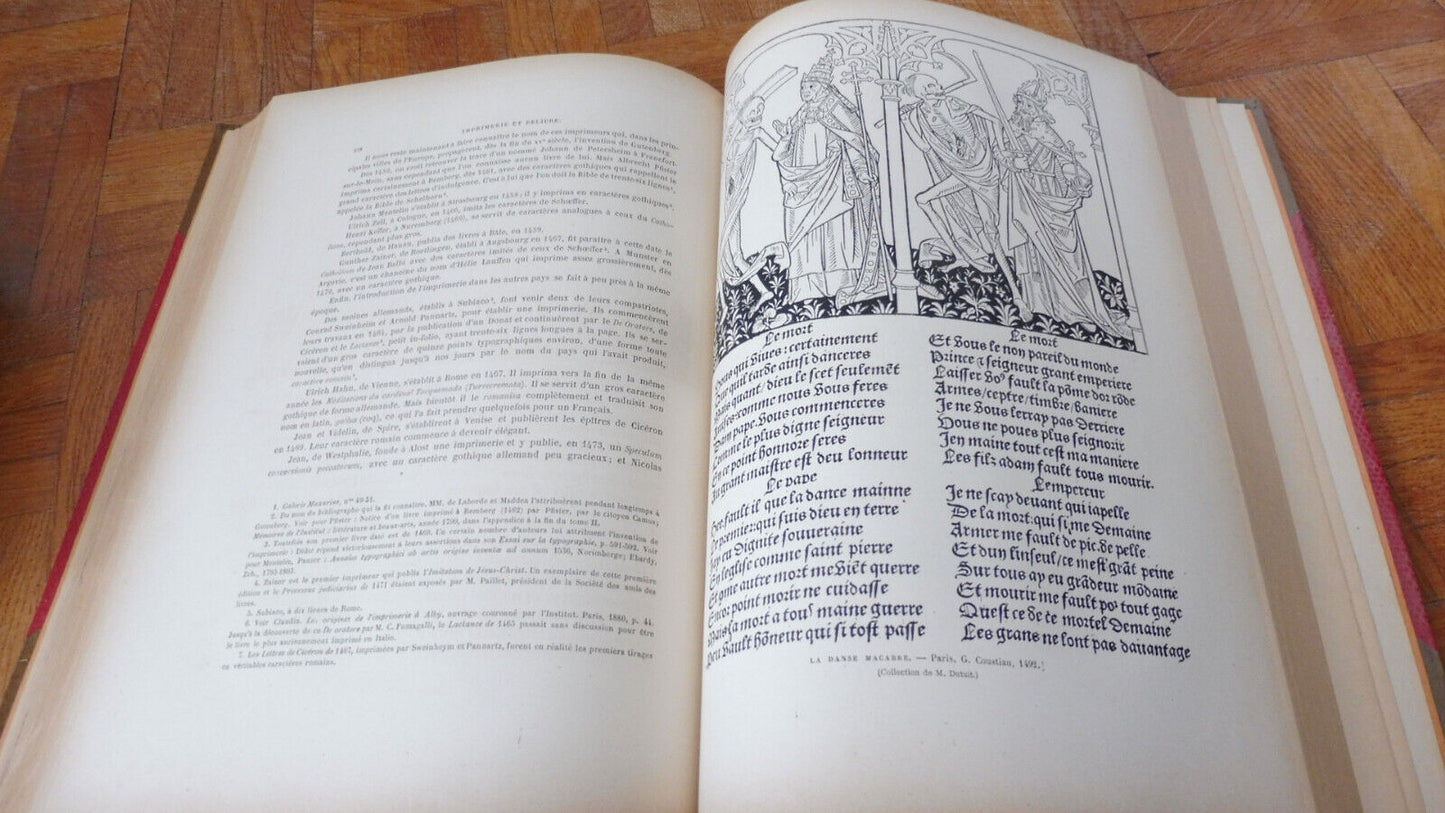 IMPRIMERIE ET RELIURE.
Il nous reste maintenant à faire connaître le nom de ces imprimeurs qui, dans les prin-
cipales villes de l'Europe, propagèrent, dès la fin du XVe siècle, l'invention de Gutenberg.
Dès 1459, on croit retrouver la trace d'un nommé Johann de Petersheim à Francfort-
sur-le-Mein, sans cependant que l'on connaisse aucun livre de lui. Mais Albrecht Pfister
imprima certainement à Bemberg, dès 1461, avec des caractères gothiques qui rappellent le
grand caractère des lettres d'indulgence. C'est à lui que l'on doit la Bible de trente-six lignes,
appelée la Bible de Schelhorn
Johann Mentelin s'établit à Strasbourg en 1458; il y imprima en caractères gothiques
Ulrich Zell, à Cologne, en 1466, imita les caractères de Schœffer.
Henri Keffer, à Nuremberg (1469), se servit de caractères analogues à ceux du Catho-
licon, cependant plus gros.
Berthold, de Hanau, publia des livres à Bâle, en 1459.
Gunther Zainer, de Reutlingen, établi à Augsbourg en 1467, fit paraître à cette date le
Catholicon de Jean Balbi avec des caractères imités de ceux de Schœffer⁴. A Munster en
Argovie, c'est un chanoine du nom d'Hélie Lauffen qui imprime assez grossièrement, dès
1470, avec un caractère gothique.
Enfin, l'introduction de l'imprimerie dans les autres pays se fait à peu près à la même
époque.
Des moines allemands, établis à Subiaco⁵, font venir deux de leurs compatriotes,
Conrad Sweinheim et Arnold Pannartz, pour établir une imprimerie. Ils commencèrent
leurs travaux en 1464, par la publication d'un Donat et continuèrent par le De Oratore, de
Cicéron et le Lactance⁶, petit in-folio, ayant trente-six lignes longues à la page. Ils se ser-
vaient d'un gros caractère de quinze points typographiques environ, d'une forme toute
nouvelle, qu'on distingue jusqu'à nos jours par le nom du pays qui l'avait produit,
caractère romain⁷.
Ulrich Hahn, de Vienne, s'établit à Rome en 1467. Il imprima vers la fin de la même
année les Méditations du cardinal Torquemada (Turrecremata). Il se servait d'un gros caractère
gothique de forme allemande. Mais bientôt il le romanisa complètement et traduisait son
nom en latin, gallus (coq), ce qui l'a fait prendre quelquefois pour un Français.
Jean et Videlin, de Spire, s'établirent à Venise et publièrent les épîtres de Cicéron
en 1469. Leur caractère romain commence à devenir élégant.
Jean, de Westphalie, fonde à Alost une imprimerie et y publie, en 1473, un Speculum
conversionis peccatorum, avec un caractère gothique allemand peu gracieux; et Nicolas
1. Gabrie Mazarine, nos 49-51.
2. Du nom du bibliographe qui la fit connaître. MM. de Laborde et Madden l'attribuèrent pendant longtemps à
Gutenberg. Voir pour Pfister : Notice d'un livre imprimé à Bemberg (1462) par Pfister, par le citoyen Camus;
Mémoires de l'Institut : littérature et beaux-arts, année 1799, dans l'appendice à la fin du tome II.
3. Toutefois son premier livre daté est de 1469. Un certain nombre d'auteurs lui attribuent l'invention de
l'imprimerie : Didot répond victorieusement à leurs assertions dans son Essai sur la typographie, p. 591-592. Voir
pour Mentelin, Panzer : Annales typographici ab artis origine inventæ ad annum 1536, Norimbergæ; Ebardy,
Zeh., 1793-1803.
4. Zainer est le premier imprimeur qui publia l'Imitation de Jésus-Christ. Un exemplaire de cette première
édition et le Processus judiciarius de 1471 étaient exposés par M. Paillet, président de la Société des amis des
livres.
5. Subiaco, à dix lieues de Rome.
6. Voir Claudin. Les origines de l'imprimerie à Alby, ouvrage couronné par l'Institut. Paris, 1880, p. 44.
Jusqu'à la découverte de ce De oratore par M. C. Fumagalli, le Lactance de 1465 passait sans discussion pour être
le livre le plus anciennement imprimé en Italie.
7. Les Lettres de Cicéron de 1467, imprimées par Sweinheym et Pannartz, furent en réalité les premiers tirages
en véritables caractères romains.
Le mort
Vous qui viues: certainement
quil tarde ainsi danceres
quant/dieu le scet seulemēt
comme nous Vous feres
Dam pape: Vous commenceres
Comme le plus digne seigneur
En ce point honnore seres
Au grant maistre est deu lonneur
Le pape
fault il que la dance mainne
Le premier: qui suis dieu en terre
Jay eu Dignite souueraine
En leglise comme saint pierre
Et cōme autre mort me viēt querre
Encor point morir ne cuidasse
Mais la mort a tous maine guerre
Peu Vault hōneur qui si tost passe
Le mort
Et Vous le non pareil du monde
Prince & seigneur grant emperiere
Laisser fault la pōme dor rōde
Armes/ceptre/timbre/baniere
Je ne Vous lerray pas derriere
Vous ne poues plus seignorir
Jen maine tout cest ma maniere
Les filz adam fault tous mourir.
Lempereur
Je ne scay deuant qui iapelle
De la mort: qui si me Demaine
Armer me fault de pic. de pelle
Et dun linseul/ce mest grāt peine
Sur tous ay eu grādeur mōdaine
Et mourir me fault pour tout gage
Quest ce de ce mortel Demaine
Les grans ne lont pas dauantage
LA DANSE MACABRE. — Paris, G. Coustiau, 1492.]
(Collection de M. Dutuit.)